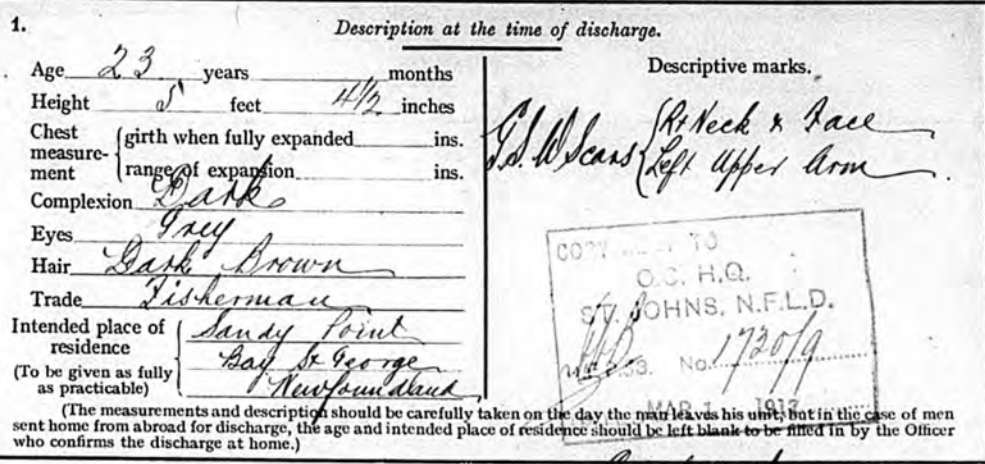 1. Description at the time of discharge.
Age 23 years months
Height 5' feet 4 1/2 inches
Chest measure-ment { girth when fully expanded ins.
range of expansion ins.
Complexion Dark
Eyes Grey
Hair Dark Brown
Trade Fisherman
Intended place of residence { Sandy Point
(To be given as fully as practicable) Bay St George
Newfoundland
Descriptive marks.
G.S.W Scars { Rt Neck & Face
Left Upper Arm.
COPY TO
O.C. H.Q.
ST. JOHNS, N.F.L.D.
No. 1730/9
MAR 1
(The measurements and description should be carefully taken on the day the man leaves his unit, but in the case of men
sent home from abroad for discharge, the age and intended place of residence should be left blank to be filled in by the Officer
who confirms the discharge at home.)